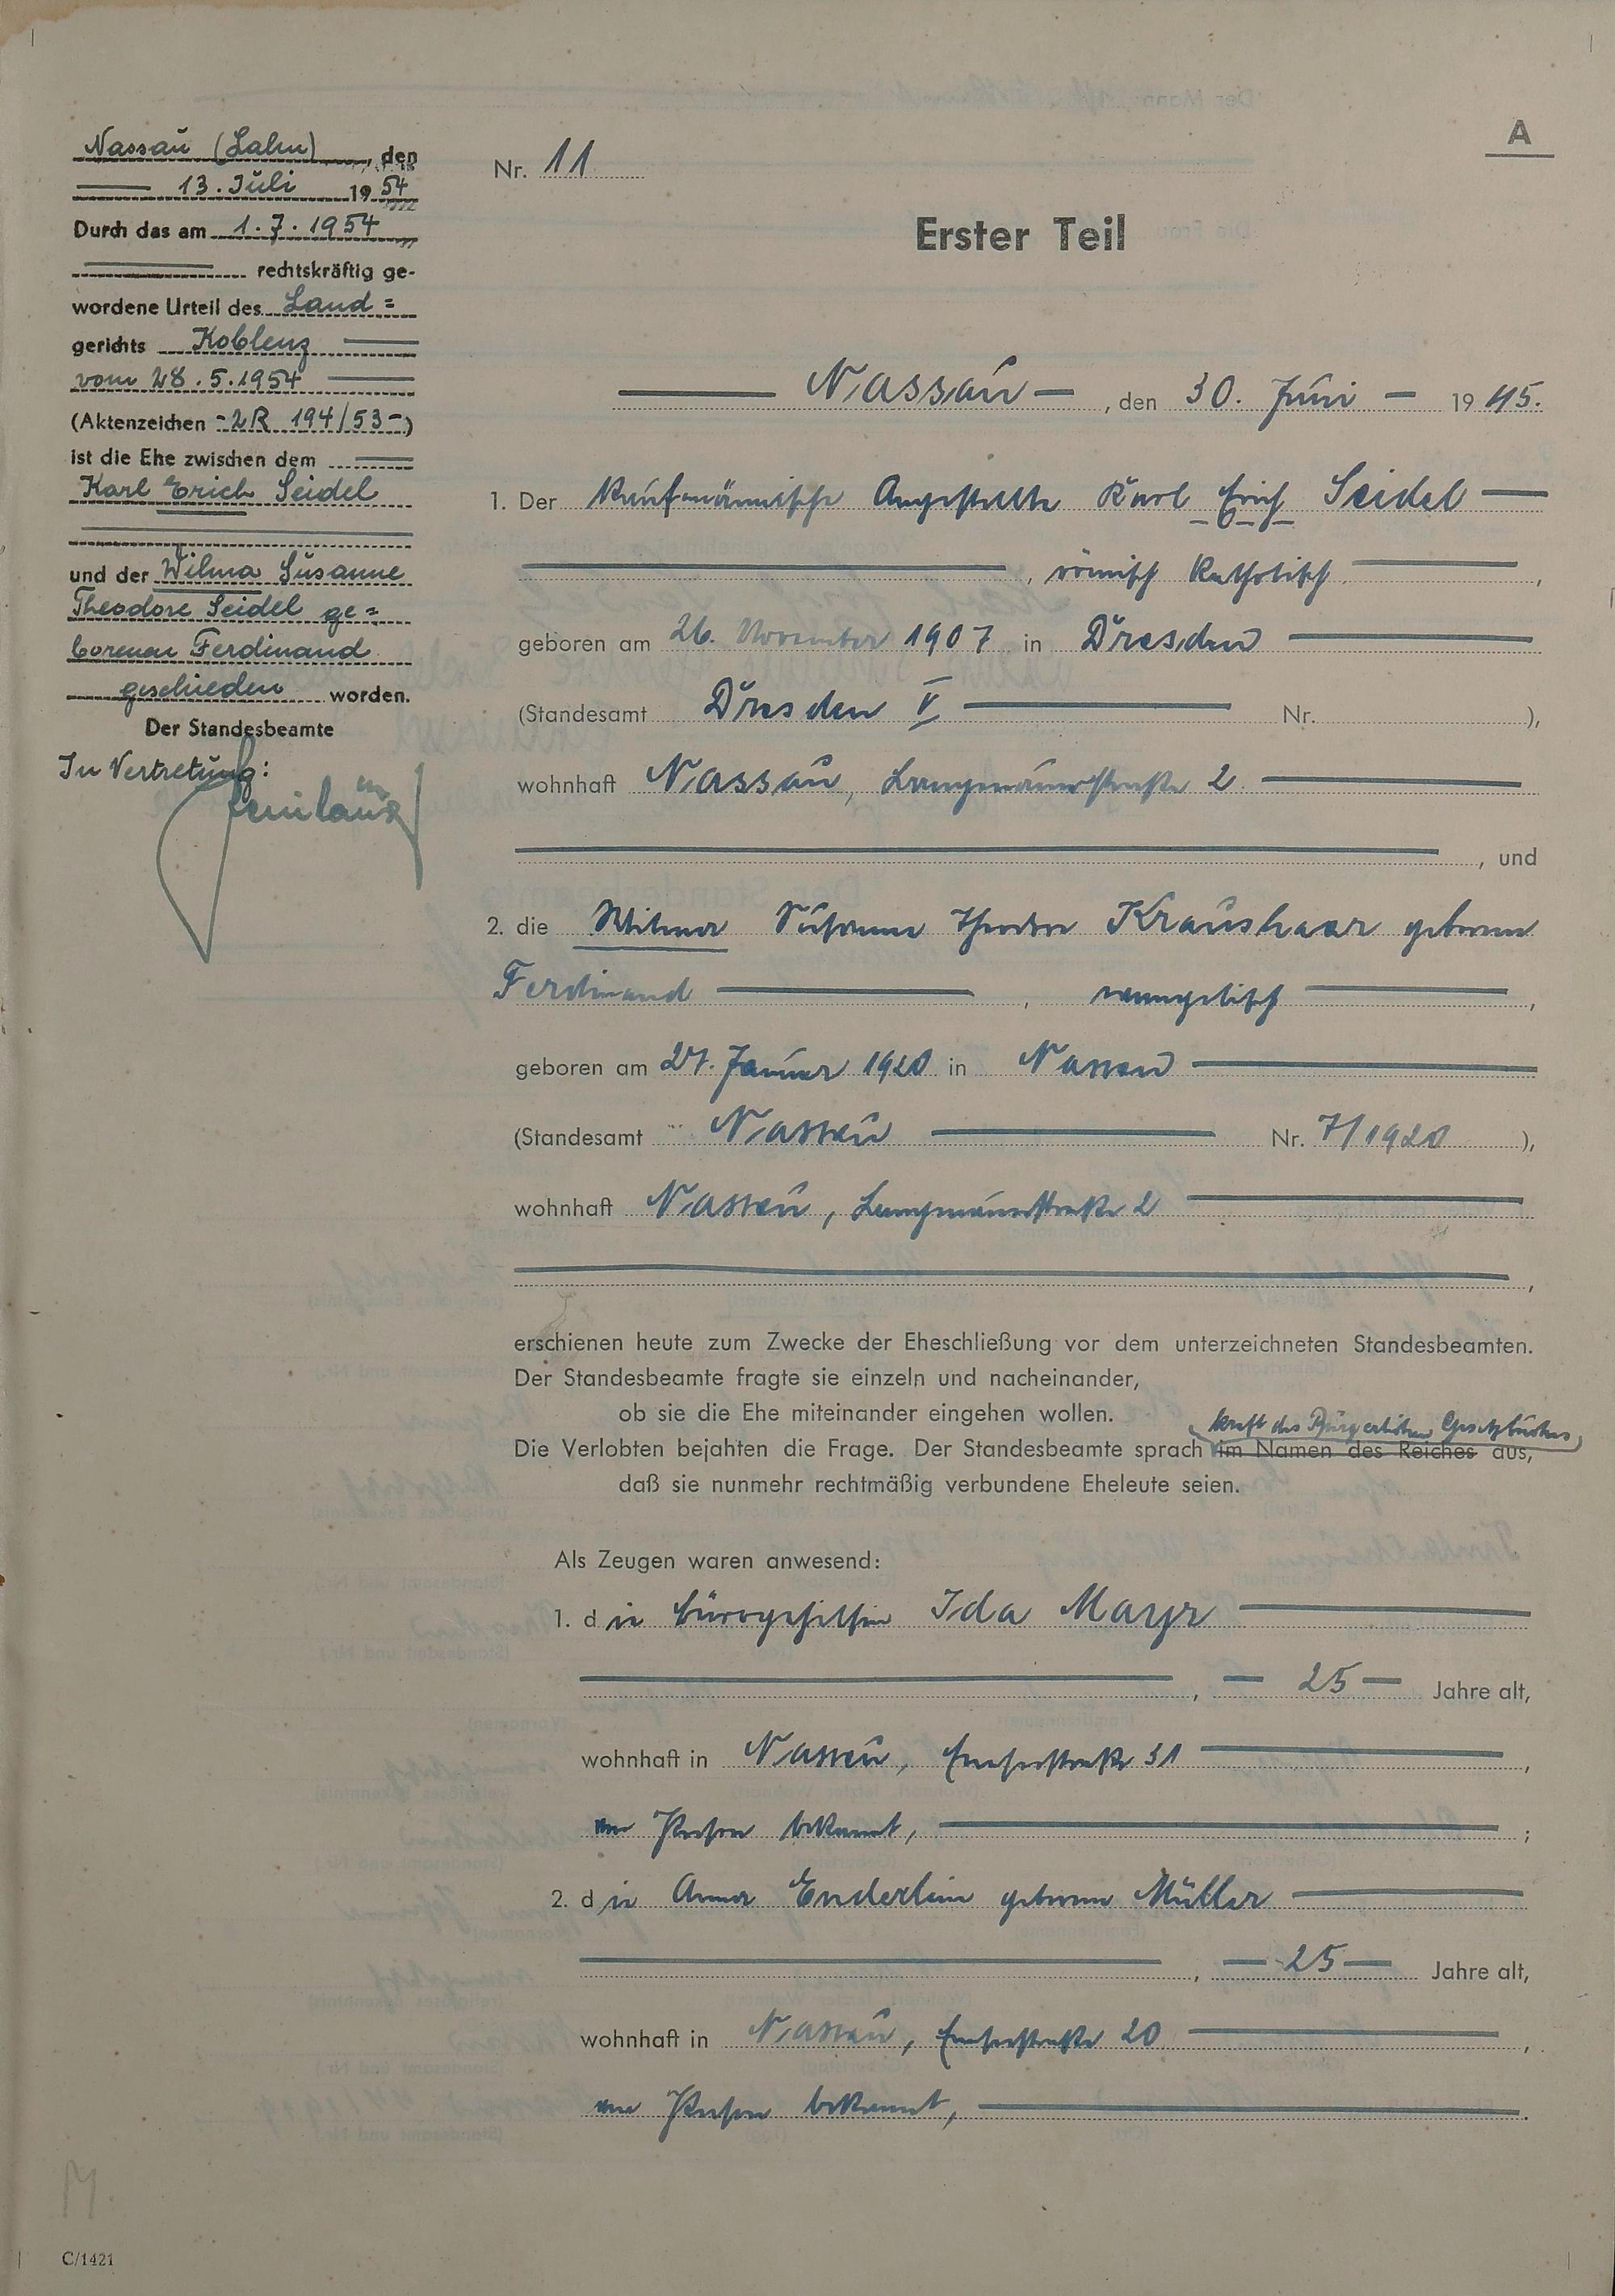 Nassau (Lahn), den
13. Juli 1954
Durch das am 1.7.1954
rechtskräftig ge-
wordene Urteil des Land=
gerichts Koblenz
vom 28.5.1954
(Aktenzeichen -2R 194/53-)
ist die Ehe zwischen dem
Karl Erich Seidel
und der Wilma Susanne
Theodore Seidel ge=
borenen Ferdinand
geschieden worden.
Der Standesbeamte
In Vertretung:
A
Nr. 11
Erster Teil
Nassau, den 30. Juni 1945.
1. Der kaufmännische Angestellte Karl Erich Seidel
, römisch katholisch,
geboren am 26. November 1907 in Dresden
(Standesamt Dresden V Nr. ),
wohnhaft Nassau, Langmauerstraße 2
, und
2. die Wilma Susanne Theodore Kraushaar geborene
Ferdinand, evangelisch,
geboren am 27. Januar 1920 in Nassau
(Standesamt Nassau Nr. 7/1920),
wohnhaft Nassau, Langmauerstraße 2
,
erschienen heute zum Zwecke der Eheschließung vor dem unterzeichneten Standesbeamten.
Der Standesbeamte fragte sie einzeln und nacheinander,
ob sie die Ehe miteinander eingehen wollen.
kraft des Bürgerlichen Gesetzbuches
Die Verlobten bejahten die Frage. Der Standesbeamte sprach im Namen des Reiches aus,
daß sie nunmehr rechtmäßig verbundene Eheleute seien.
Als Zeugen waren anwesend:
1. die Bürogehilfin Ida Mayr
, 25 Jahre alt,
wohnhaft in Nassau, Emserstraße 31,
von Person bekannt, ;
2. die Anna Enderlein geborene Müller
, 25 Jahre alt,
wohnhaft in Nassau, Emserstraße 20,
von Person bekannt, .
C/1421